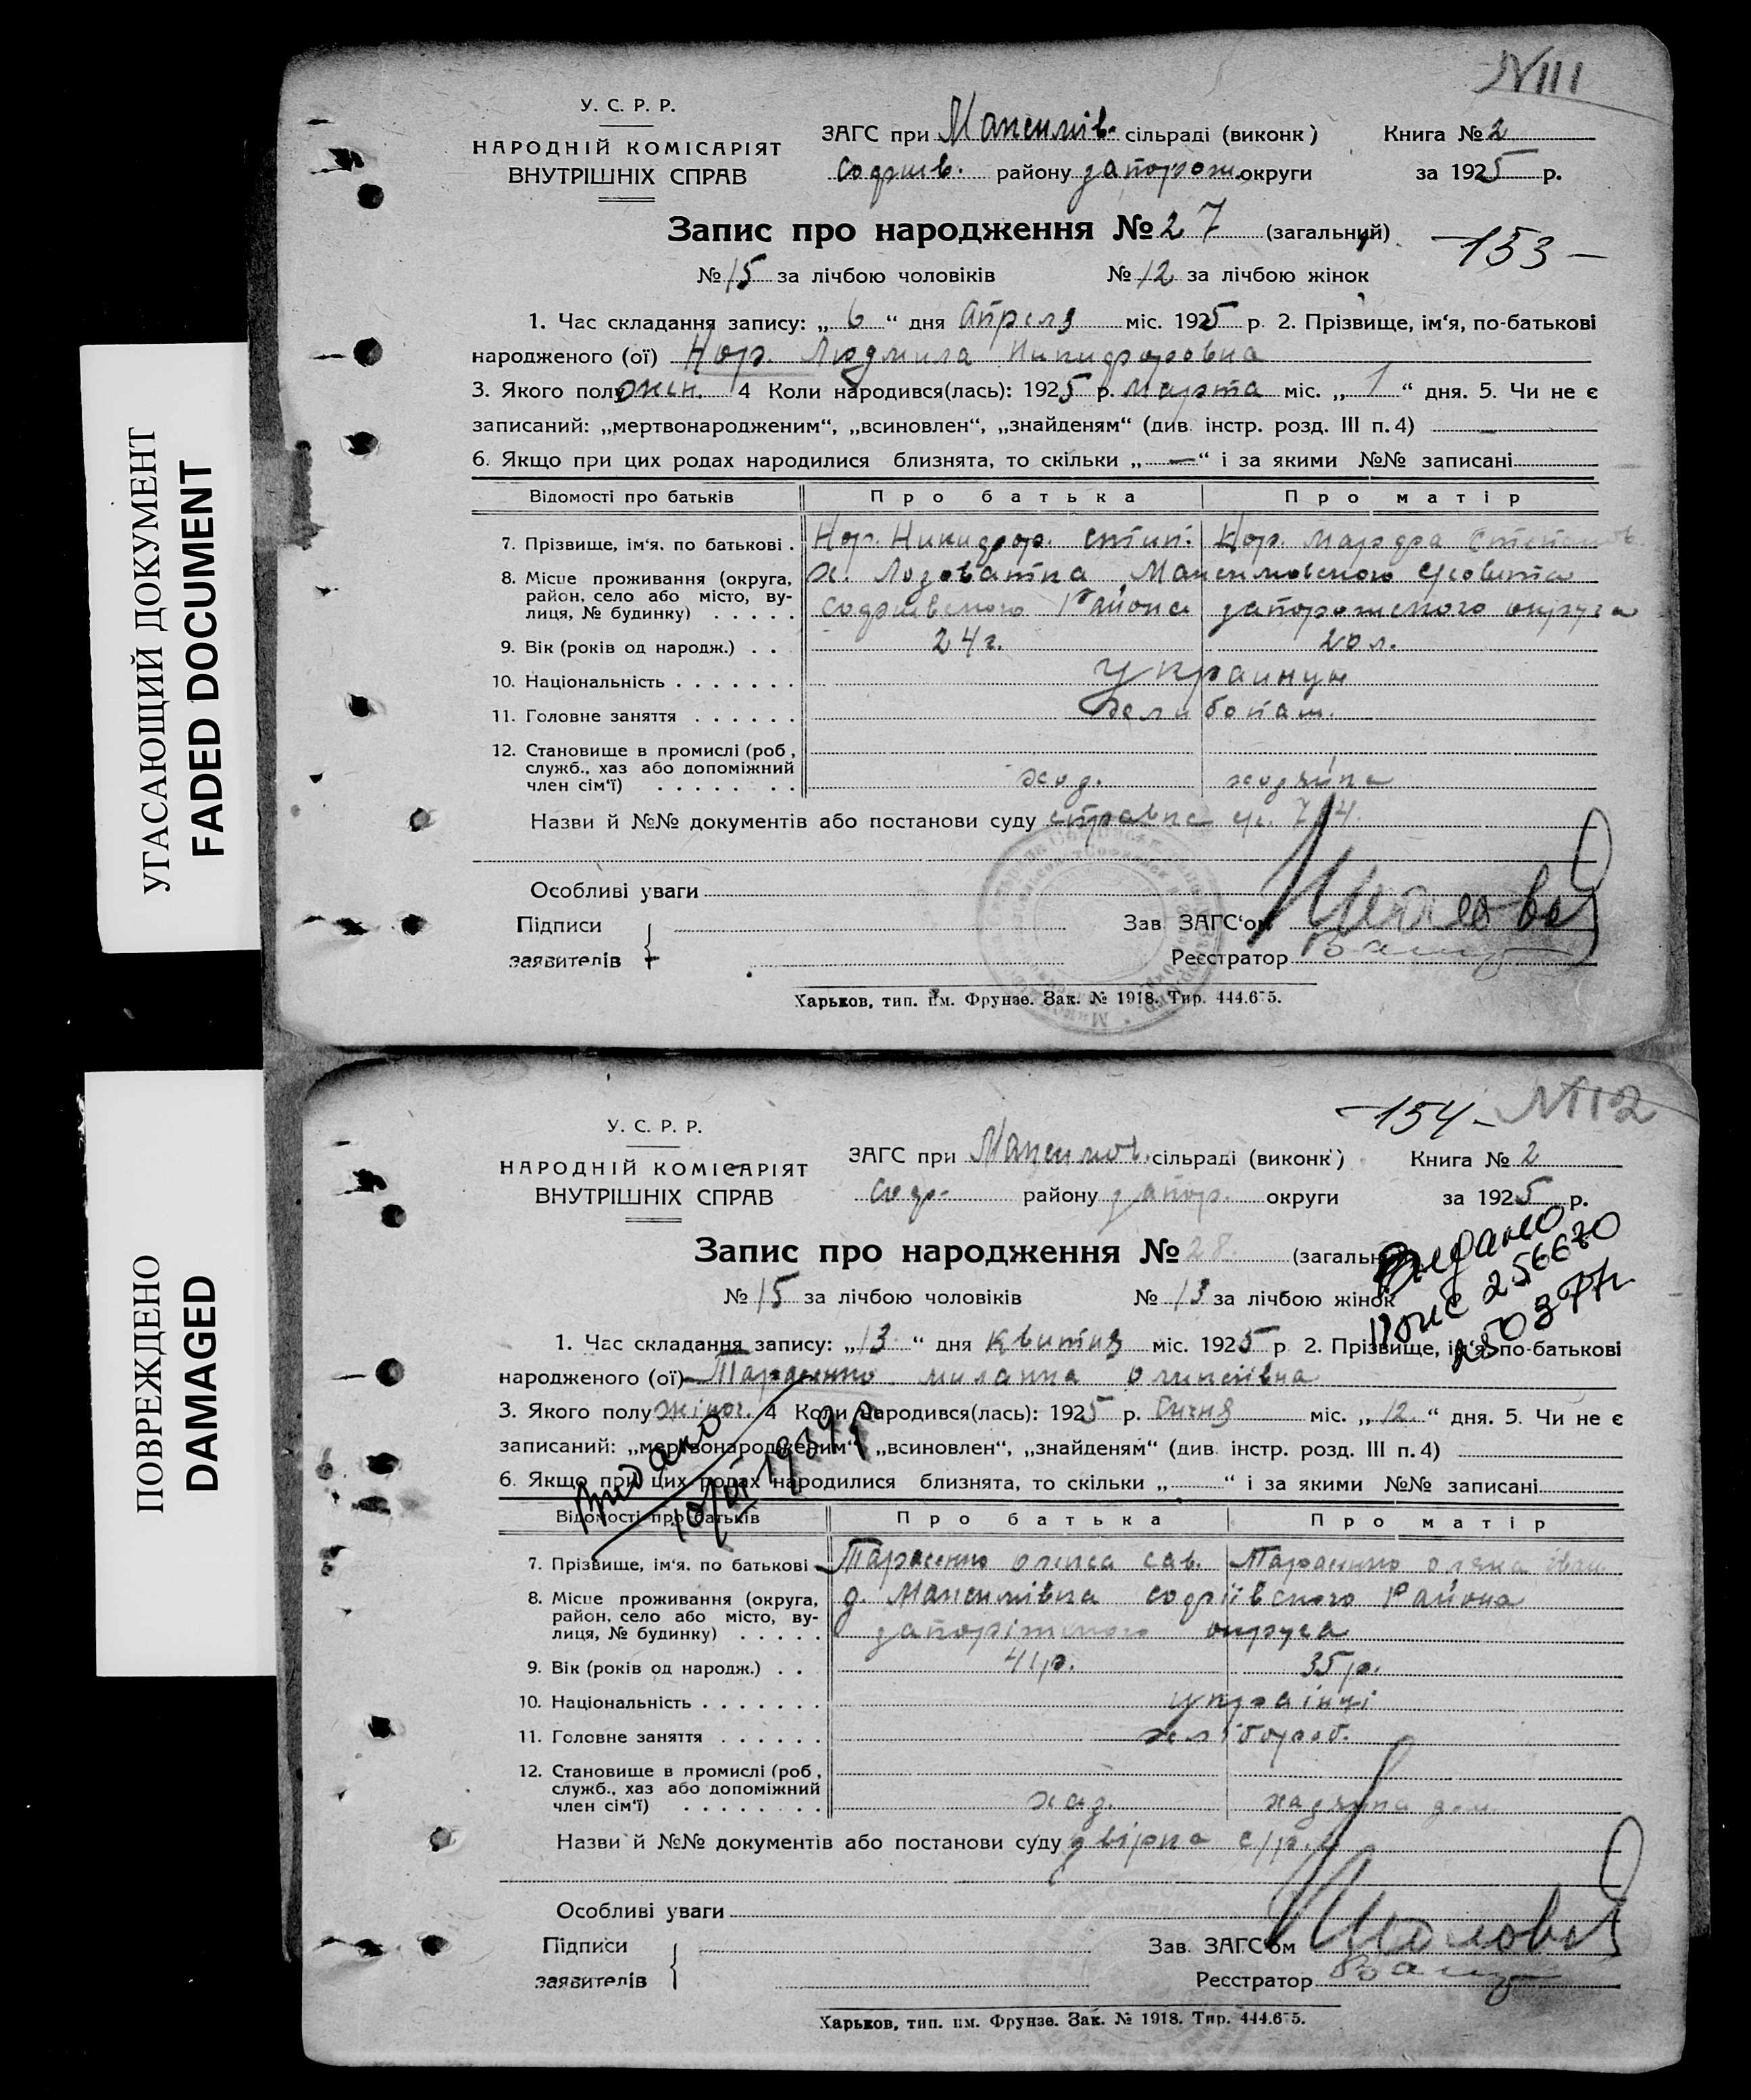 УГАСАЮЩИЙ ДОКУМЕНТ
FADED DOCUMENT
ПОВРЕЖДЕНО
DAMAGED
N111
У. С. Р. Р.
НАРОДНІЙ КОМІСАРІЯТ
ВНУТРІШНІХ СПРАВ
ЗАГС при Максимів. сільраді (виконк) Книга № 2
Софиив. району запорож. округи за 1925 р.
Запис про народження № 27 (загальний)
-153-
№ 15 за лічбою чоловіків № 12 за лічбою жінок
1. Час складання запису: „6“ дня Апреля міс. 1925 р. 2. Прізвище, ім‘я, по-батькові
народженого (ої) Кор. Людмила Никифоровна
3. Якого полу жен. 4 Коли народився(лась): 1925 р. Марта міс. „1“ дня. 5. Чи не є
записаний: „мертвонародженим“, „всиновлен“, „знайденям“ (див. інстр. розд. III п. 4) —
6. Якщо при цих родах народилися близнята, то скільки „—“ і за якими №№ записані
Відомості про батьків Про батька Про матір
7. Прізвище, ім‘я, по батькові . Кор. Никифор. Кор. Марфа
8. Місце проживання (округа, район, село або місто, вулиця, № будинку) . . . . . х. Лозоватка Максимовского
Софиевского Района запорожского округа
9. Вік (років од народж.) . . 24 г. 20 л.
10. Національність . . . . . . .
11. Головне заняття . . . . . .
12. Становище в промислі (роб, служб., хаз або допоміжний член сім‘ї) . . . . . . . . хоз. хозяйка
Назви й №№ документів або постанови суду справка
Особливі уваги
Підписи
заявителів
Зав. ЗАГС‘ом
Реєстратор
Харьков, тип. им. Фрунзе. Зак. № 1918. Тир. 444.675.
-154- N112
У. С. Р. Р.
НАРОДНІЙ КОМІСАРІЯТ
ВНУТРІШНІХ СПРАВ
ЗАГС при Максимов. сільраді (виконк) Книга № 2
Соф. району запор. округи за 1925 р.
Видано
256670
Запис про народження № 28. (загальний)
№ 15 за лічбою чоловіків № 13 за лічбою жінок
1. Час складання запису: „13“ дня квитня міс. 1925 р 2. Прізвище, ім‘я, по-батькові
народженого (ої) Тарасенко Олексіївна
3. Якого полу жіноч. 4 Коли народився(лась): 1925 р. Сичня міс. „12.“ дня. 5. Чи не є
записаний: „мертвонародженим“, „всиновлен“, „знайденям“ (див. інстр. розд. III п. 4)
6. Якщо при цих родах народилися близнята, то скільки „ “ і за якими №№ записані
Видано
1939р
Відомості про батьків Про батька Про матір
7. Прізвище, ім‘я, по батькові Тарасенко Олекса сав. Тарасенко Іван.
8. Місце проживання (округа, район, село або місто, вулиця, № будинку) . . . . . д. Максимівка софіівского Района
запоріжского округа
9. Вік (років од народж.) . . 41 р. 35 р.
10. Національність . . . . . . . українці
11. Головне заняття . . . . . . хлібороб.
12. Становище в промислі (роб, служб., хаз або допоміжний член сім‘ї) . . . . . . . . хаз.
Назви й №№ документів або постанови суду
Особливі уваги
Підписи
заявителів
Зав. ЗАГС‘ом
Реєстратор
Харьков, тип. им. Фрунзе. Зак. № 1918. Тир. 444.675.